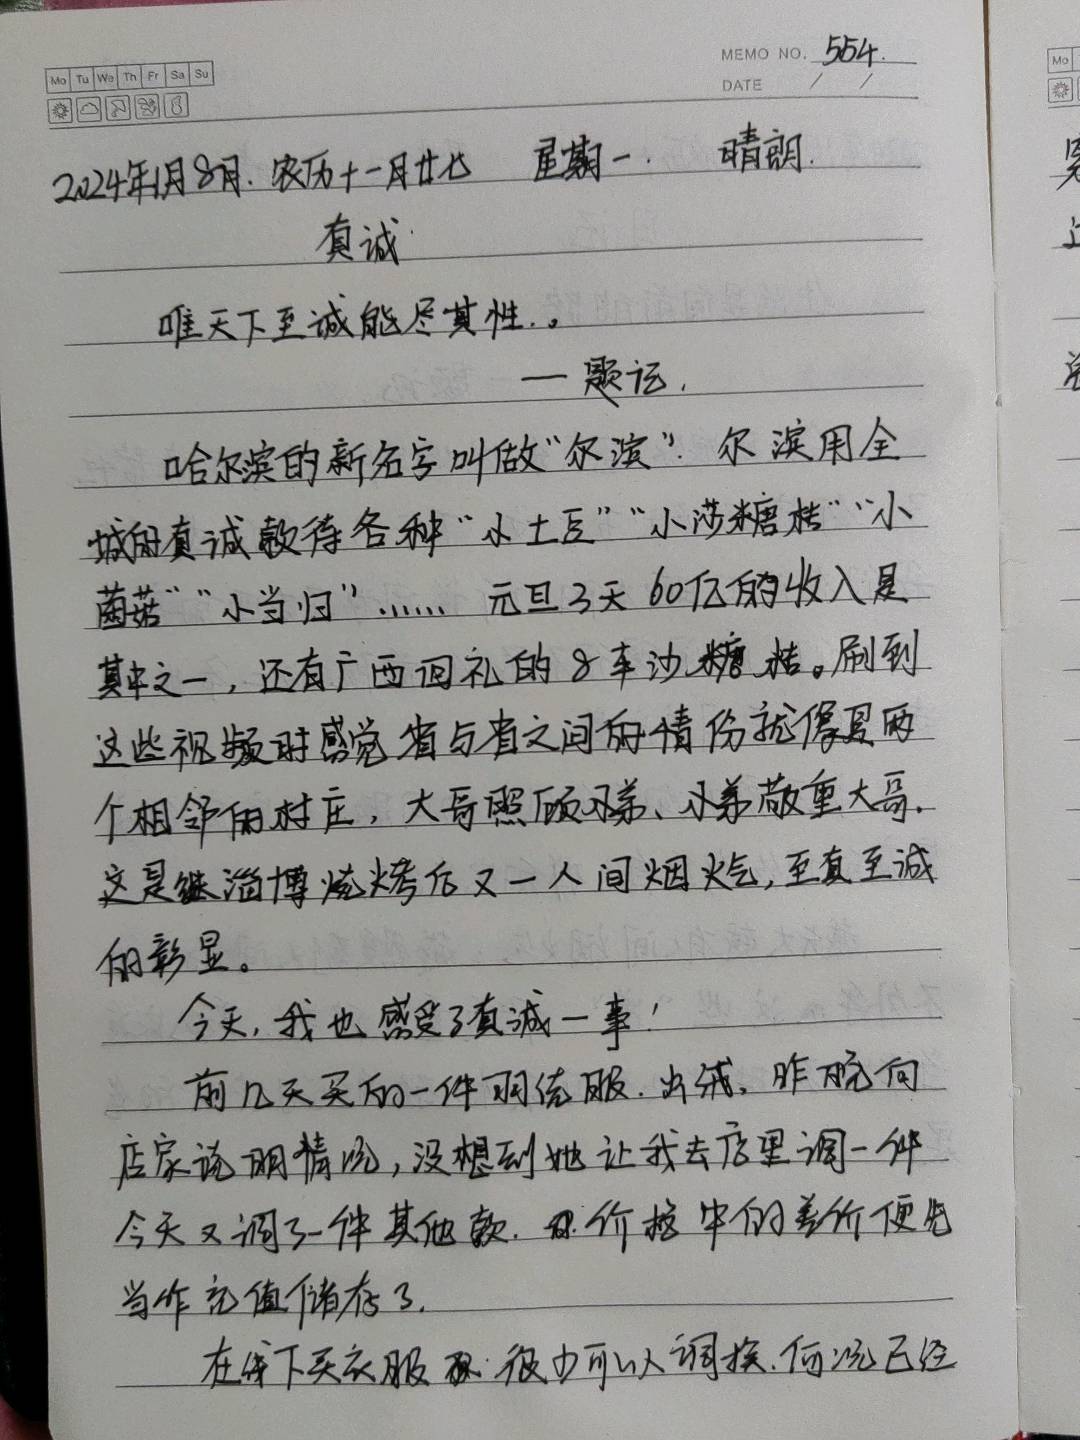 MEMO NO. 554.
Mo Tu We Th Fr Sa Su
DATE / /
2024年1月8月. 农历十一月廿七 星期一. 晴朗.
真诚.
唯天下至诚能尽其性.。
——题记.
哈尔滨的新名字叫做“尔滨”. 尔滨用全
城的真诚款待各种“小土豆”“小莎糖桔”“小
菌菇”“小当归”...... 元旦3天60亿的收入是
其中之一，还有广西回礼的8车沙糖桔。刷到
这些视频时感觉省与省之间的情份就像是两
个相邻的村庄，大哥照顾小弟、小弟敬重大哥.
这是继淄博烧烤后又一人间烟火气，至真至诚
的彰显。
今天，我也感受了真诚一事！
前几天买的一件羽绒服. 出绒. 昨晚向
店家说明情况，没想到她让我去店里调一件
今天又调了一件其他款. 价格中的差价便先
当作充值储存了.
在线下买衣服 很少可以调换. 何况已经
Mo